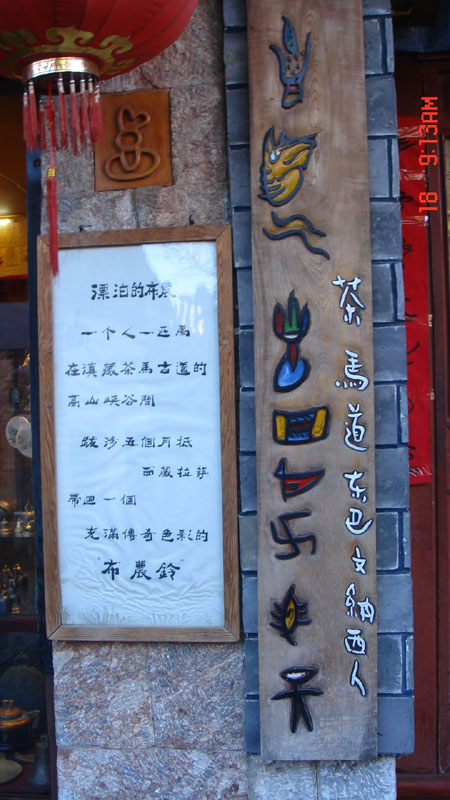 漂泊的布農
一个人一匹馬
在滇藏茶馬古道的
高山峽谷間
跋涉五個月抵
西藏拉萨
帶迴一個
充滿傳奇色彩的
"布農鈴"
茶馬道东巴文納西人
18 9:13AM